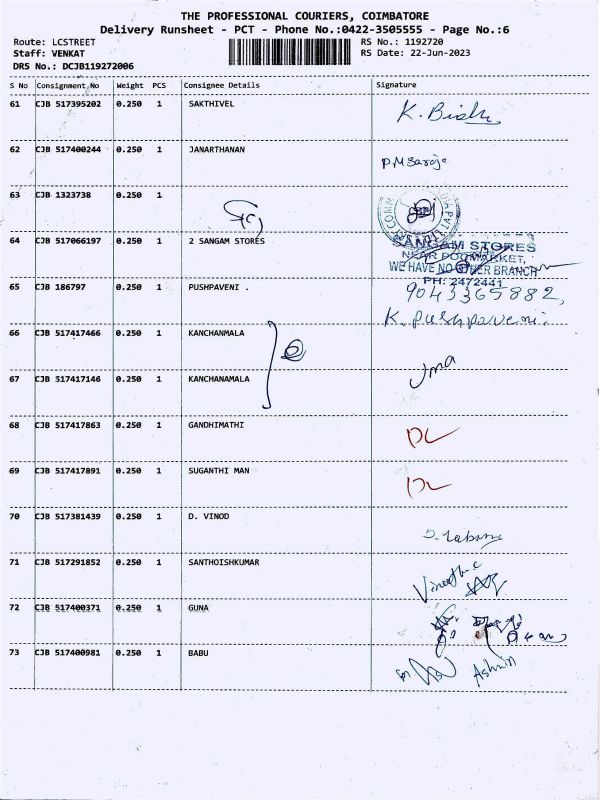 THE PROFESSIONAL COURIERS, COIMBATORE
Delivery Runsheet - PCT - Phone No.:0422-3505555 - Page No.:6
Route: LCSTREET RS No.: 1192720
Staff: VENKAT RS Date: 22-Jun-2023
DRS No.: DCJB119272006
S No Consignment No Weight PCS Consignee Details Signature
61 CJB 517395202 0.250 1 SAKTHIVEL
62 CJB 517400244 0.250 1 JANARTHANAN
PM Saroja
63 CJB 1323738 0.250 1
64 CJB 517066197 0.250 1 2 SANGAM STORES
SANGAM STORES
NEAR POOMARKET,
WE HAVE NO OTHER BRANCH
PH: 2472441
65 CJB 186797 0.250 1 PUSHPAVENI .
9043365882,
K. pushpaveni.
66 CJB 517417466 0.250 1 KANCHANMALA
67 CJB 517417146 0.250 1 KANCHANAMALA
Uma
68 CJB 517417863 0.250 1 GANDHIMATHI
DL
69 CJB 517417891 0.250 1 SUGANTHI MAN
DL
70 CJB 517381439 0.250 1 D. VINOD
71 CJB 517291852 0.250 1 SANTHOISHKUMAR
72 CJB 517400371 0.250 1 GUNA
73 CJB 517400981 0.250 1 BABU
Ashwin